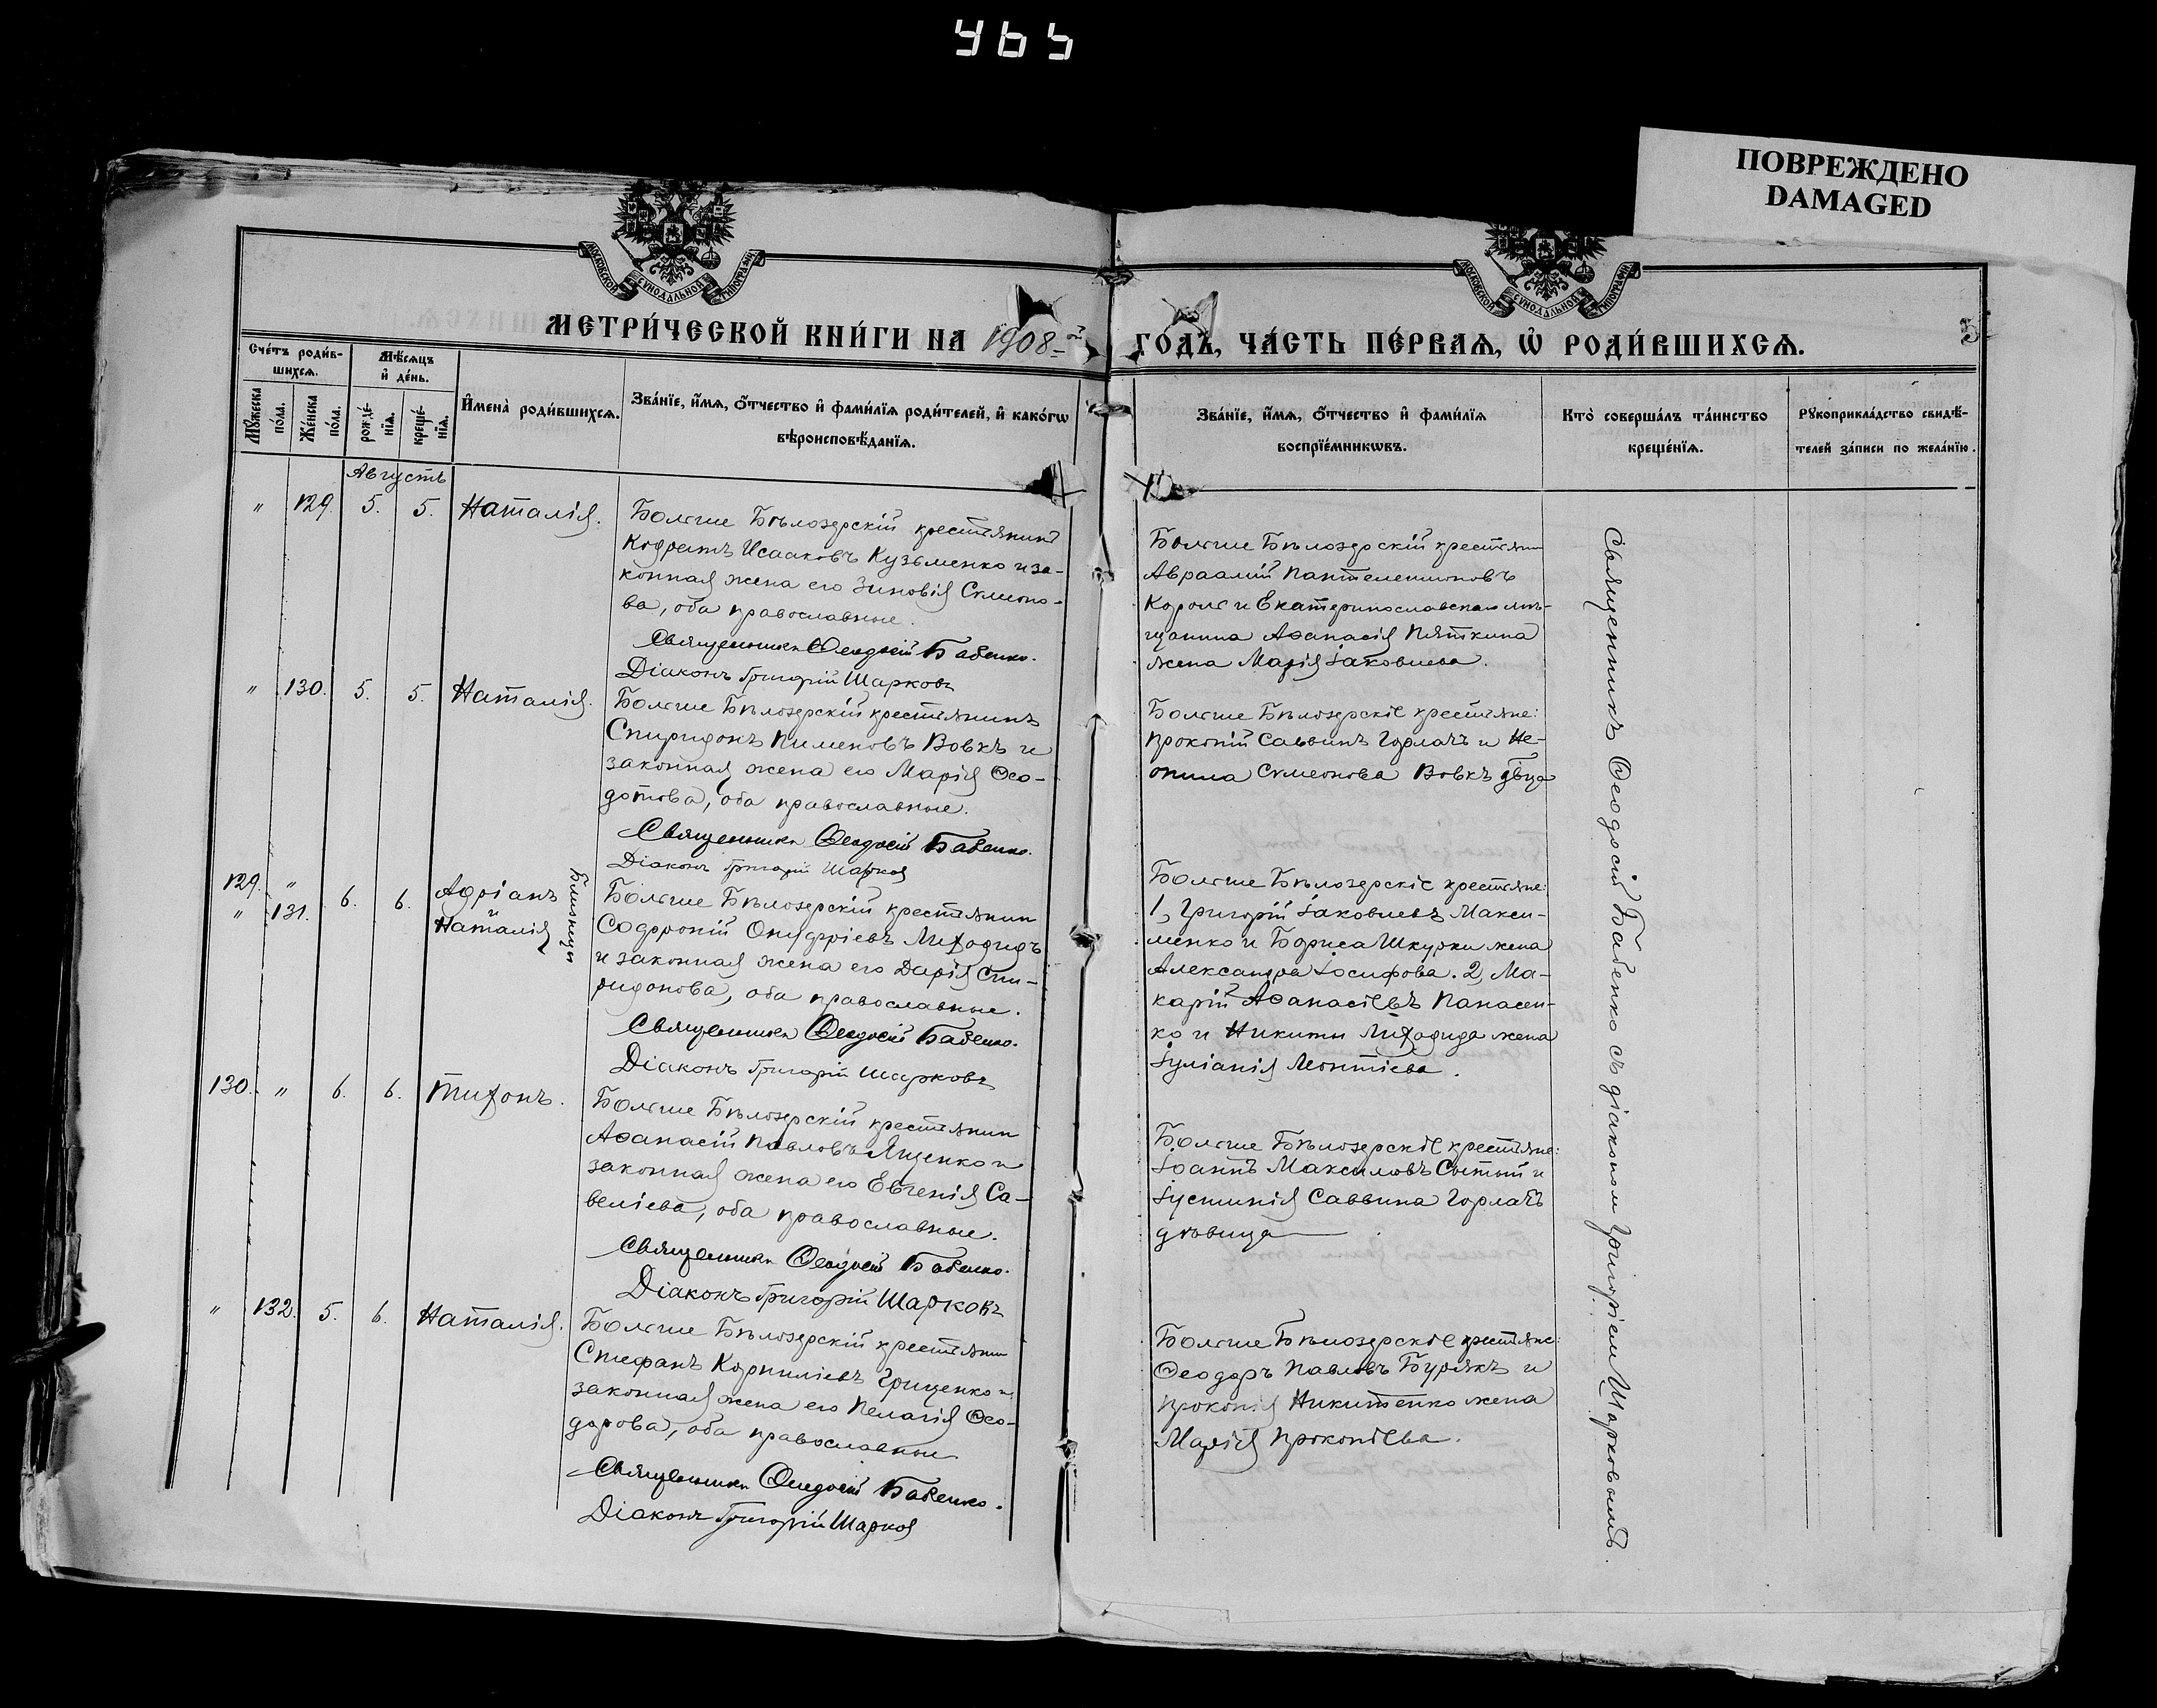 465
ПОВРЕЖДЕНО
DAMAGED
МОСКОВСКОЙ СУНОДАЛЬНОЙ ТИПОГРАФІИ
МОСКОВСКОЙ СУНОДАЛЬНОЙ ТИПОГРАФІИ
МЕТРИ́ЧЕСКОЙ КНИ́ГИ НА 1908-й
ГО́ДЪ, ЧА́СТЬ ПЕ́РВАѦ, Ѡ҆ РОДИ́ВШИХСѦ.
Сче́тъ роди́в-
шихсѧ.
Мѣ́сѧцъ
и҆ де́нь.
Мꙋ́жеска
по́ла.
Же́нска
по́ла.
рожде́-
нїѧ.
креще́-
нїѧ.
И҆мена̀ роди́вшихсѧ.
Зва́нїе, и҆́мѧ, ѻ҆́тчество и҆ фами́лїѧ роди́телей, и҆ како́гѡ
вѣроисповѣ́данїѧ.
Зва́нїе, и҆́мѧ, ѻ҆́тчество и҆ фами́лїѧ
воспрїе́мникѡвъ.
Кто̀ соверша́лъ та́инство
креще́нїѧ.
Рꙋкоприкла́дство свидѣ́-
телей за́писи по жела́нїю.
Августъ
" 129. 5. 5. Наталія.
Больше Бѣлозерскій крестьянинъ
Кодратъ Исааковъ Кузьменко и за-
конная жена его Зиновія Симео-
ва, оба православные.
Священникъ Ѳеодосій Бабенко.
Діаконъ Григорій Шарковъ
Больше Бѣлозерскій крестьянин
Авраамій Пантелеимоновъ
Король и Екатеринославскаго мѣ-
щанина Аѳанасія Пяткина
жена Марія Іаковлева.
" 130. 5. 5. Наталія.
Больше Бѣлозерскій крестьянинъ
Спиридонъ Пименовъ Вовкъ и
законная жена его Марія Ѳео-
дотова, оба православные.
Священникъ Ѳеодосій Бабенко.
Діаконъ Григорій Шарков
Больше Бѣлозерскіе крестьяне:
Прокопій Саввинъ Горлачъ и Не-
онила Симеонова Вовкъ дѣвца
129. " 6. 6. Адріанъ
" 131. и
Наталія
Близнецы
Больше Бѣлозерскій крестьянин
Софроній Онуфріевъ Лиходидъ
и законная жена его Дарія Спи-
ридонова, оба православные.
Священникъ Ѳеодосій Бабенко.
Діаконъ Григорій Шарковъ
Больше Бѣлозерскіе крестьяне:
1, Григорій Іаковлевъ Макси-
менко и Бориса Шкурки жена
Александра Іосифова. 2, Ма-
карій Аѳанасіевъ Панасен-
ко и Никиты Лиходида жена
Іуліанія Леонтіева.
130. " 6. 6. Тихонъ.
Больше Бѣлозерскій крестьянин
Аѳанасій Павловъ Ященко и
законная жена его Евгенія Са-
веліева, оба православные.
Священникъ Ѳеодосій Бабенко.
Діаконъ Григорій Шарковъ
Больше Бѣлозерскіе крестьяне:
Іоаннъ Максимовъ Сытый и
Іустинія Саввина Горлачъ
дѣвица
" 132. 5. 6. Наталія.
Больше Бѣлозерскій крестьянин
Стефанъ Корниліевъ Гриценко и
законная жена его Пелагія Ѳео-
дорова, оба православные
Священникъ Ѳеодосій Бабенко.
Діаконъ Григорій Шарков
Больше Бѣлозерскіе крестьяне:
Ѳеодоръ Павловъ Бурякъ и
Прокопія Никитенко жена
Марія Прокопіева.
Священникъ Ѳеодосій Бабенко съ діакономъ Григоріемъ Шарковымъ.